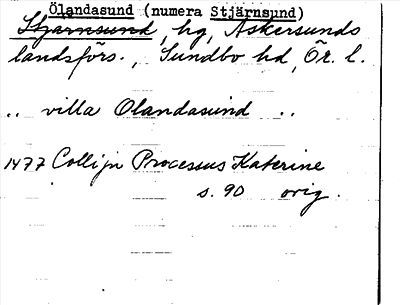 Ölandasund (numera Stjärnsund)
Stjärnsund, hg, Askersunds
landsförs., Sundbo hd, Ör. l.
.. villa Olandasund ..
1477 Collijn Processus Katerine
s. 90 orig.